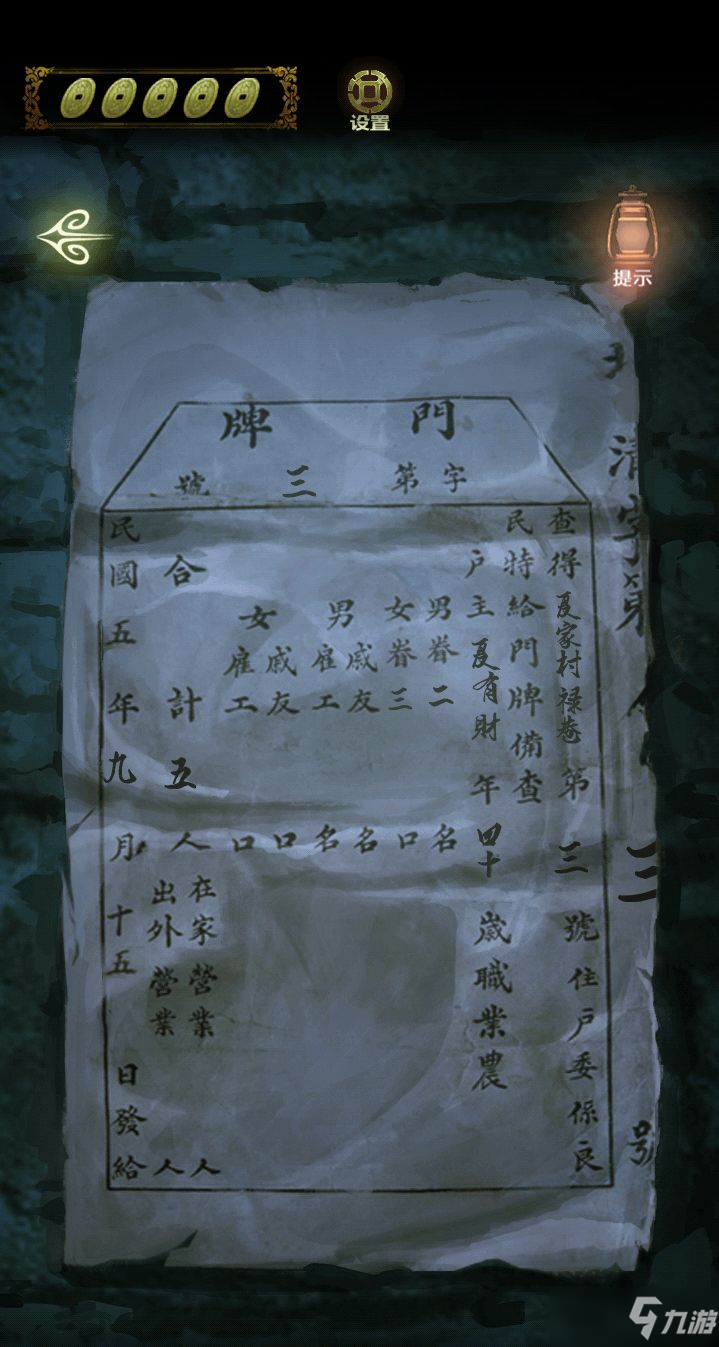 设置
提示
門牌
字第三號
清字第
三
號
查得夏家村禄巷第三號住戶委係良
民特給門牌備查
戶主夏有財年四十歲職業農
男眷二名
女眷三口
男戚友名
雇工名
女戚友口
雇工口
合計五人
在家營業人
出外營業人
民國五年九月十五日發給
九游